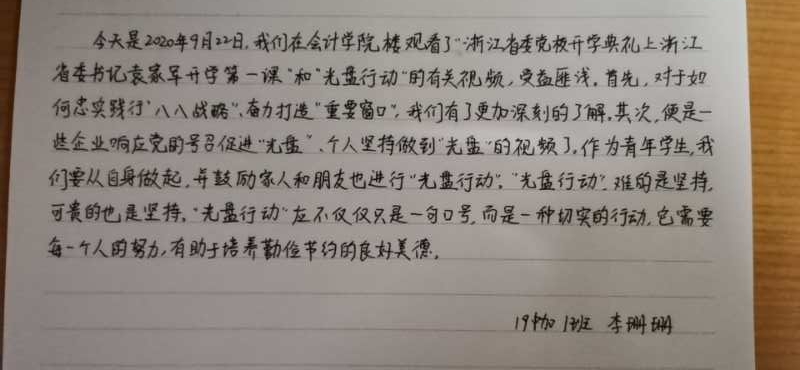 今天是2020年9月22日,我们在会计学院楼观看了"浙江省委党校开学典礼上浙江
省委书记袁家军开学第一课"和"光盘行动"的有关视频,受益匪浅。首先,对于如
何忠实践行"八八战略"、奋力打造"重要窗口",我们有了更加深刻的了解。其次,便是一
些企业响应党的号召促进"光盘"、个人坚持做到"光盘"的视频了。作为青年学生,我
们要从自身做起,并鼓励家人和朋友也进行"光盘行动"。"光盘行动",难的是坚持,
可贵的也是坚持。"光盘行动"在不仅仅只是一句口号,而是一种切实的行动,它需要
每一个人的努力,有助于培养勤俭节约的良好美德。
19中加1班 李珊珊